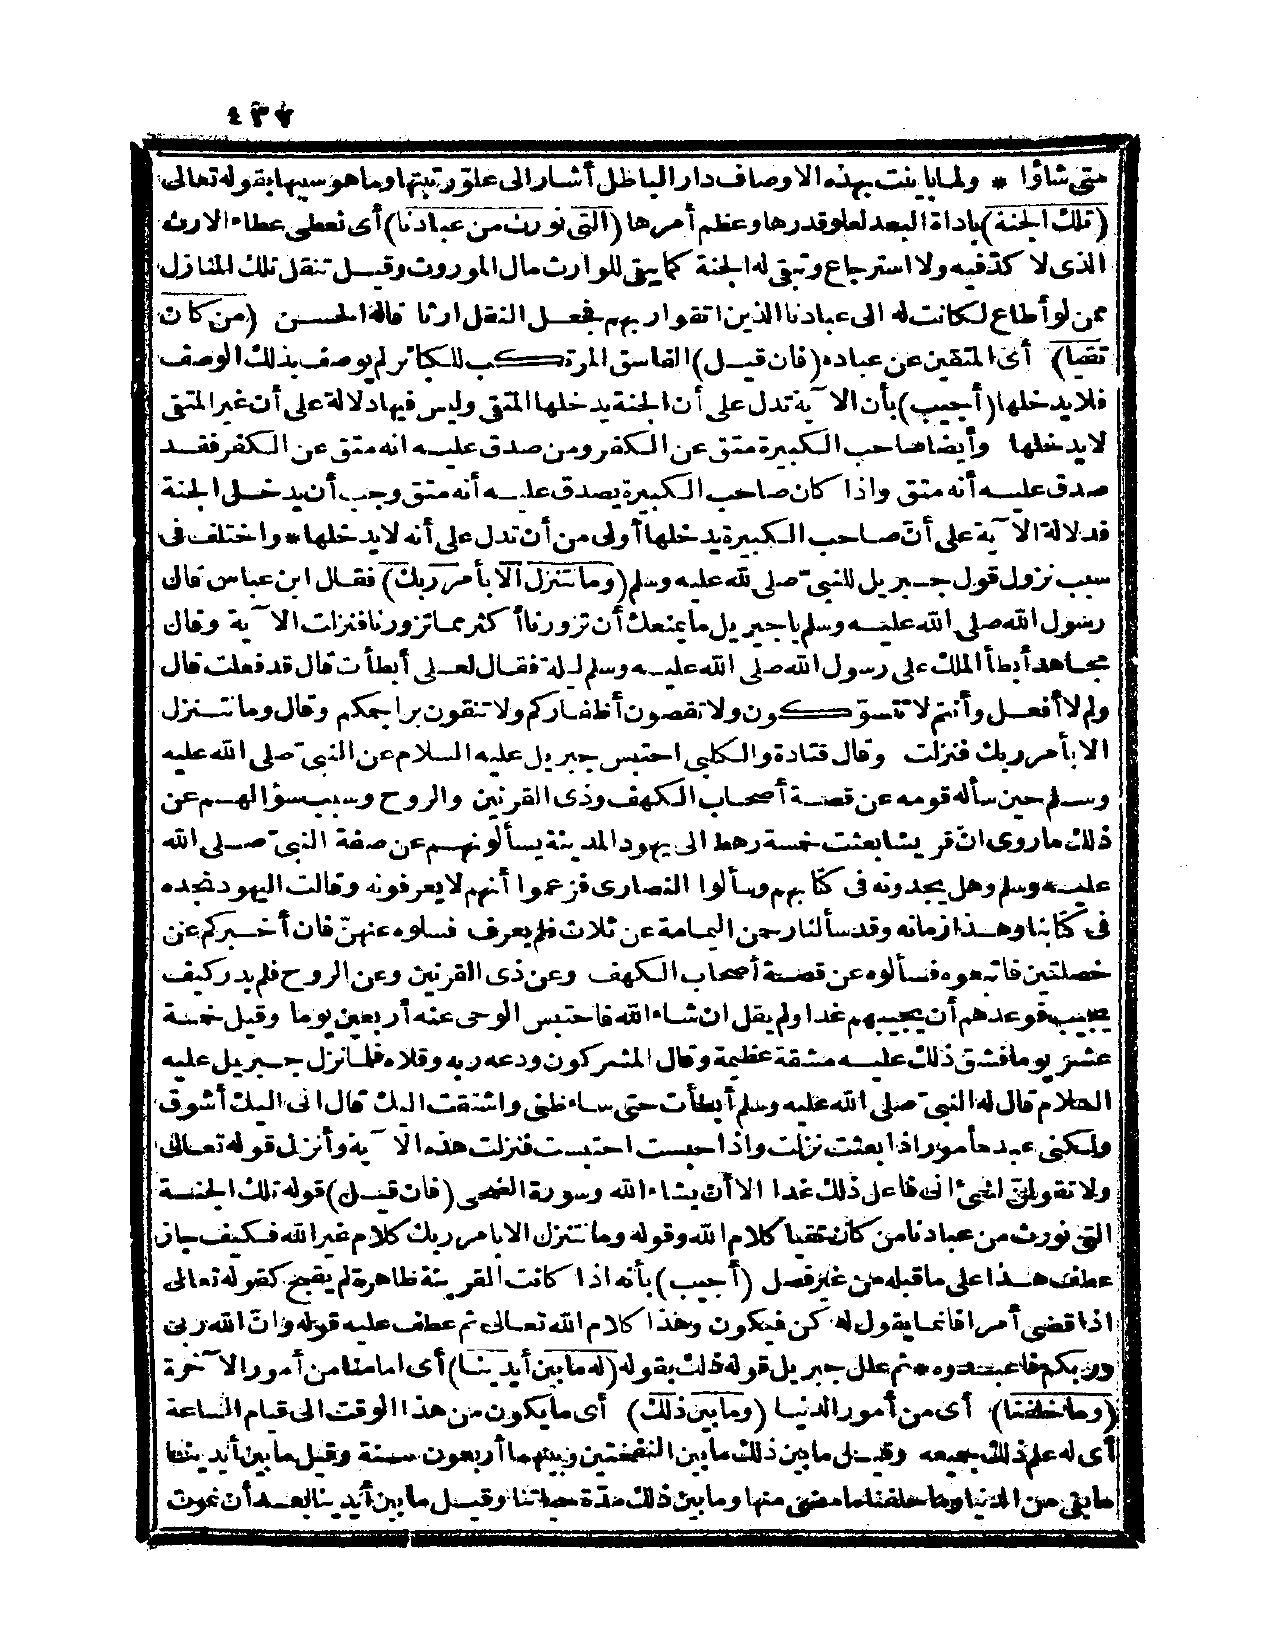 ٤٣٧
متى شاؤا * ولما باينت بهذه الاوصاف دار الباطل أشار الى علوّ رتبتها وما هو سببها بقوله تعالى
(تلك الجنة) بأداة البعد لعلو قدرها وعظم أمرها (التى نورث من عبادنا) أى نعطى عطاء الارث
الذى لا كدّ فيه ولا استرجاع وتبقى له الجنة كما يبقى للوارث مال الموروث وقيل تنقل تلك المنازل
ممن لو أطاع لكانت له الى عبادنا الذين اتقوا ربهم فجعل النقل ارثا قاله الحسن (من كان
تقيا) أى المتقين عن عباده (فان قيل) الفاسق المرتكب للكبائر لم يوصف بذلك الوصف
فلا يدخلها (أجيب) بأن الآية تدل على أن الجنة يدخلها المتقى وليس فيها دلالة على أن غير المتقى
لا يدخلها وأيضا صاحب الكبيرة متق عن الكفر ومن صدق عليه انه متق عن الكفر فقد
صدق عليه أنه متق واذا كان صاحب الكبيرة يصدق عليه أنه متق وجب أن يدخل الجنة
فدلالة الآية على أنّ صاحب الكبيرة يدخلها أولى من أن تدل على أنه لا يدخلها * واختلف فى
سبب نزول قول جبريل للنبىّ صلى الله عليه وسلم (وما نتنزل الا بأمر ربك) فقال ابن عباس قال
رسول الله صلى الله عليه وسلم يا جبريل ما يمنعك أن تزورنا أكثر مما تزورنا فنزلت الآية وقال
مجاهد أبطأ الملك على رسول الله صلى الله عليه وسلم ليلة فقال لعلى أبطأت قال قد فعلت قال
ولم لا أفعل وأنتم لا تتسوّكون ولا تقصون أظفاركم ولا تنقون براجمكم وقال وما نتنزل
الا بأمر ربك فنزلت وقال قتادة والكلبى احتبس جبريل عليه السلام عن النبىّ صلى الله عليه
وسلم حين سأله قومه عن قصة أصحاب الكهف وذى القرنين والروح وسبب سؤالهم عن
ذلك ما روى انّ قريشا بعثت خمسة رهط الى يهود المدينة يسألونهم عن صفة النبىّ صلى الله
عليه وسلم وهل يجدونه فى كتابهم وسألوا النصارى فزعموا أنهم لا يعرفونه وقالت اليهود نجده
فى كتابنا وهذا زمانه وقد سألنا رحمن اليمامة عن ثلاث فلم يعرف فسلوه عنهنّ فان أخبركم عن
خصلتين فاتبعوه فسألوه عن قصة أصحاب الكهف وعن ذى القرنين وعن الروح فلم يدر كيف
يجيب فوعدهم أن يجيبهم غدا ولم يقل ان شاء الله فاحتبس الوحى عنه أربعين يوما وقيل خمسة
عشر يوما فشق ذلك عليه مشقة عظيمة وقال المشركون ودعه ربه وقلاه فلما نزل جبريل عليه
السلام قال له النبىّ صلى الله عليه وسلم أبطأت حتى ساء ظنى واشتقت اليك قال انى اليك أشوق
ولكنى عبد مأمور اذا بعثت نزلت واذا حبست احتبست فنزلت هذه الآية وأنزل قوله تعالى
ولا تقولنّ لشئ انى فاعل ذلك غدا الا أن يشاء الله وسورة الضحى (فان قيل) قوله تلك الجنة
التى نورث من عبادنا من كان تقيا كلام الله وقوله وما نتنزل الا بامر ربك كلام غير الله فكيف جاز
عطف هذا على ما قبله من غير فصل (أجيب) بأنه اذا كانت القرينة ظاهرة لم يقبح كقوله تعالى
اذا قضى أمرا فانما يقول له كن فيكون وهذا كلام الله تعالى ثم عطف عليه قوله وانّ الله ربى
وربكم فاعبدوه * ثم علل جبريل قوله ذلك بقوله (له ما بين أيدينا) أى امامنا من أمور الآخرة
(وما خلفنا) أى من أمور الدنيا (وما بين ذلك) أى ما يكون من هذا الوقت الى قيام الساعة
أى له علم ذلك جميعه وقيل ما بين ذلك ما بين النفختين وبينهما أربعون سنة وقيل ما بين أيدينا
ما بقى من الدنيا وما خلفنا ما مضى منها وما بين ذلك مدّة حياتنا وقيل ما بين أيدينا بعد أن نموت